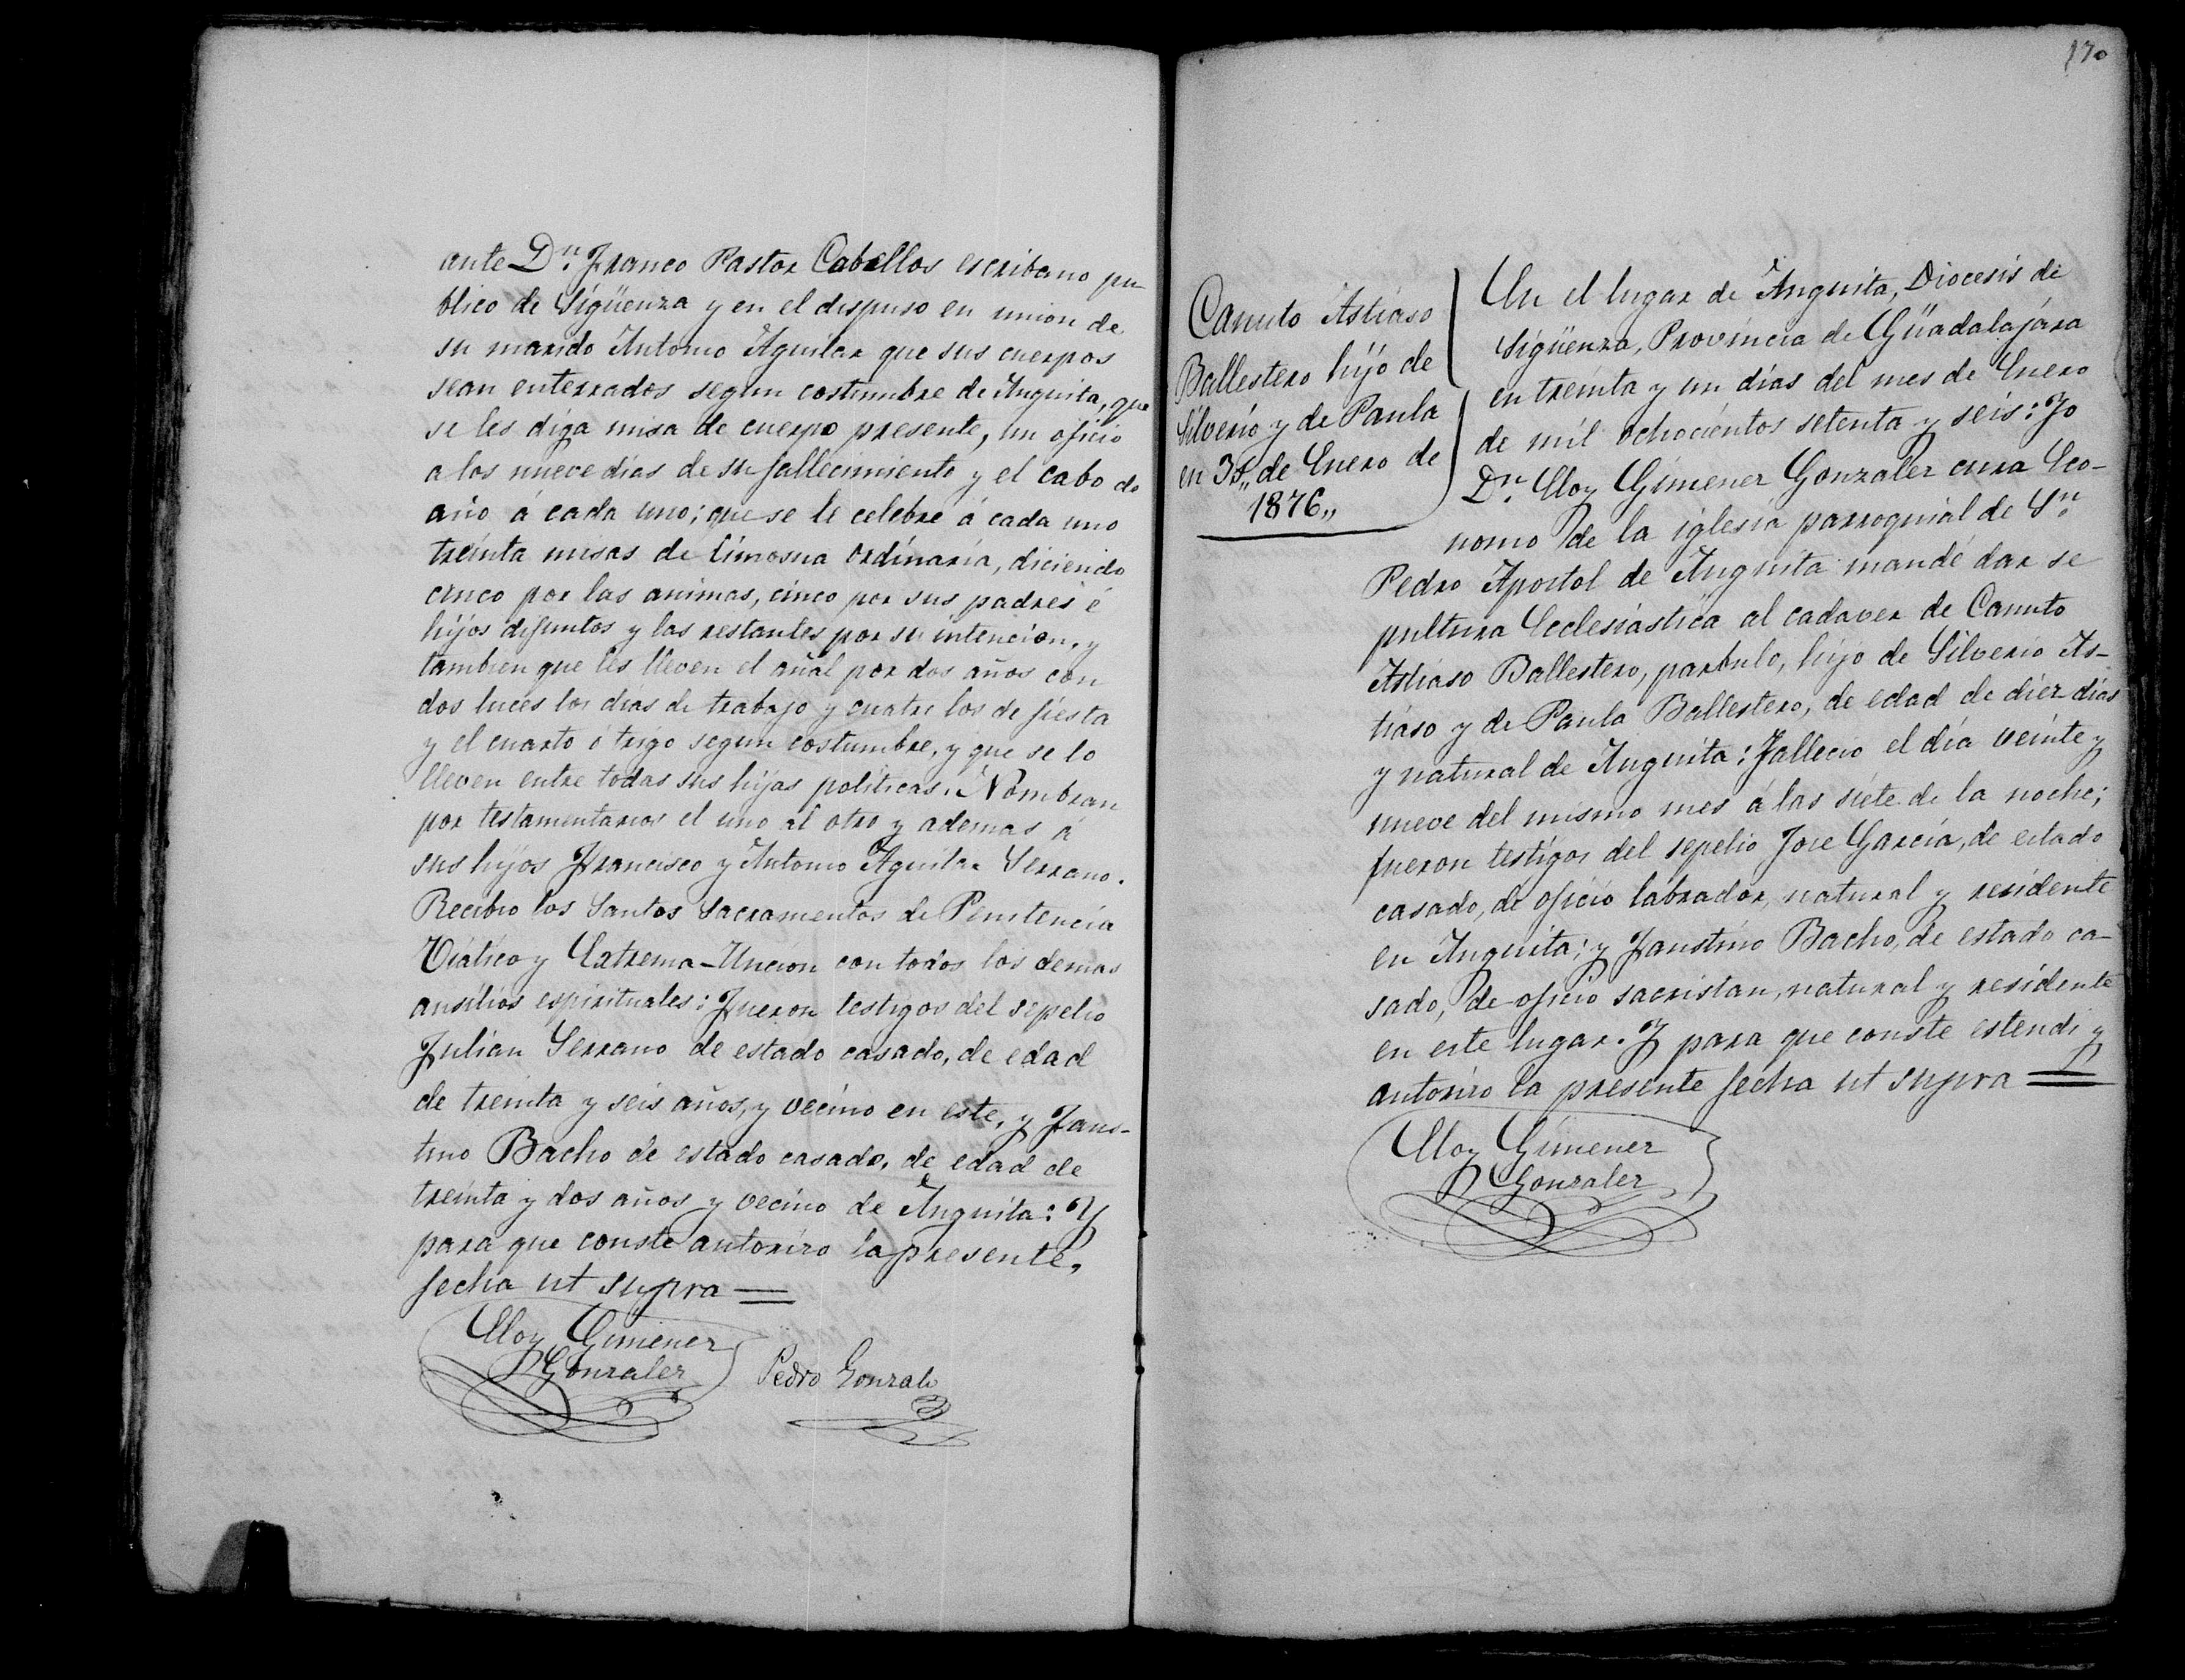 ante Dn. Franco Pastor Cabellos escribano pu-
blico de Sigüenza y en el dispuso en union de
su marido Antonio Aguilar que sus cuerpos
sean enterrados segun costumbre de Anguita, que
se les diga misa de cuerpo presente, un oficio
a los nueve dias de su fallecimiento y el cabo de
año á cada uno; que se le celebre á cada uno
treinta misas de limosna ordinaria, diciendo
cinco por las animas, cinco por sus padres é
hijos difuntos y las restantes por su intencion, y
tambien que les lleven el añal por dos años con
dos luces los dias de trabajo y cuatro los de fiesta
y el cuarto ó trigo segun costumbre, y que se lo
lleven entre todas sus hijas politicas. Nombran
por testamentarios el uno al otro y ademas á
sus hijos Francisco y Antonio Aguilar Serrano.
Recibio los Santos Sacramentos de Penitencia
Viático y Extrema-Uncion con todos los demas
ausilios espirituales: Fueron testigos del sepelio
Julian Serrano de estado casado, de edad
de treinta y seis años, y vecino en este, y Faus-
tino Bacho de estado casado, de edad de
treinta y dos años y vecino de Anguita: Y
para que conste autorizo la presente,
fecha ut supra =
Eloy Gimenez
Gonzalez
Pedro Gonzalo
170
Canuto Astiaso
Ballestero hijo de
Silverio y de Paula
en 31,, de Enero de
1876,,
En el lugar de Anguita, Diocesis de
Sigüenza, Provincia de Güadalajára
en treinta y un dias del mes de Enero
de mil ochocientos setenta y seis: Yo
Dn. Eloy Gimenez Gonzalez cura Eco-
nomo de la iglesia parroquial de Sn.
Pedro Apostol de Anguita mandé dar se
pultura Eclesiástica al cadaver de Canuto
Astiaso Ballestero, parbulo, hijo de Silverio As-
tiaso y de Paula Ballestero, de edad de diez dias
y natural de Anguita: Fallecio el dia veinte y
nueve del mismo mes á las siete de la noche;
fueron testigos del sepelio Jose García, de estado
casado, de oficio labrador, natural y residente
en Anguita; y Faustino Bacho, de estado ca-
sado, de oficio sacristan, natural y residente
en este lugar. Y para que conste estendi y
autorizo la presente fecha ut supra =
Eloy Gimenez
Gonzalez